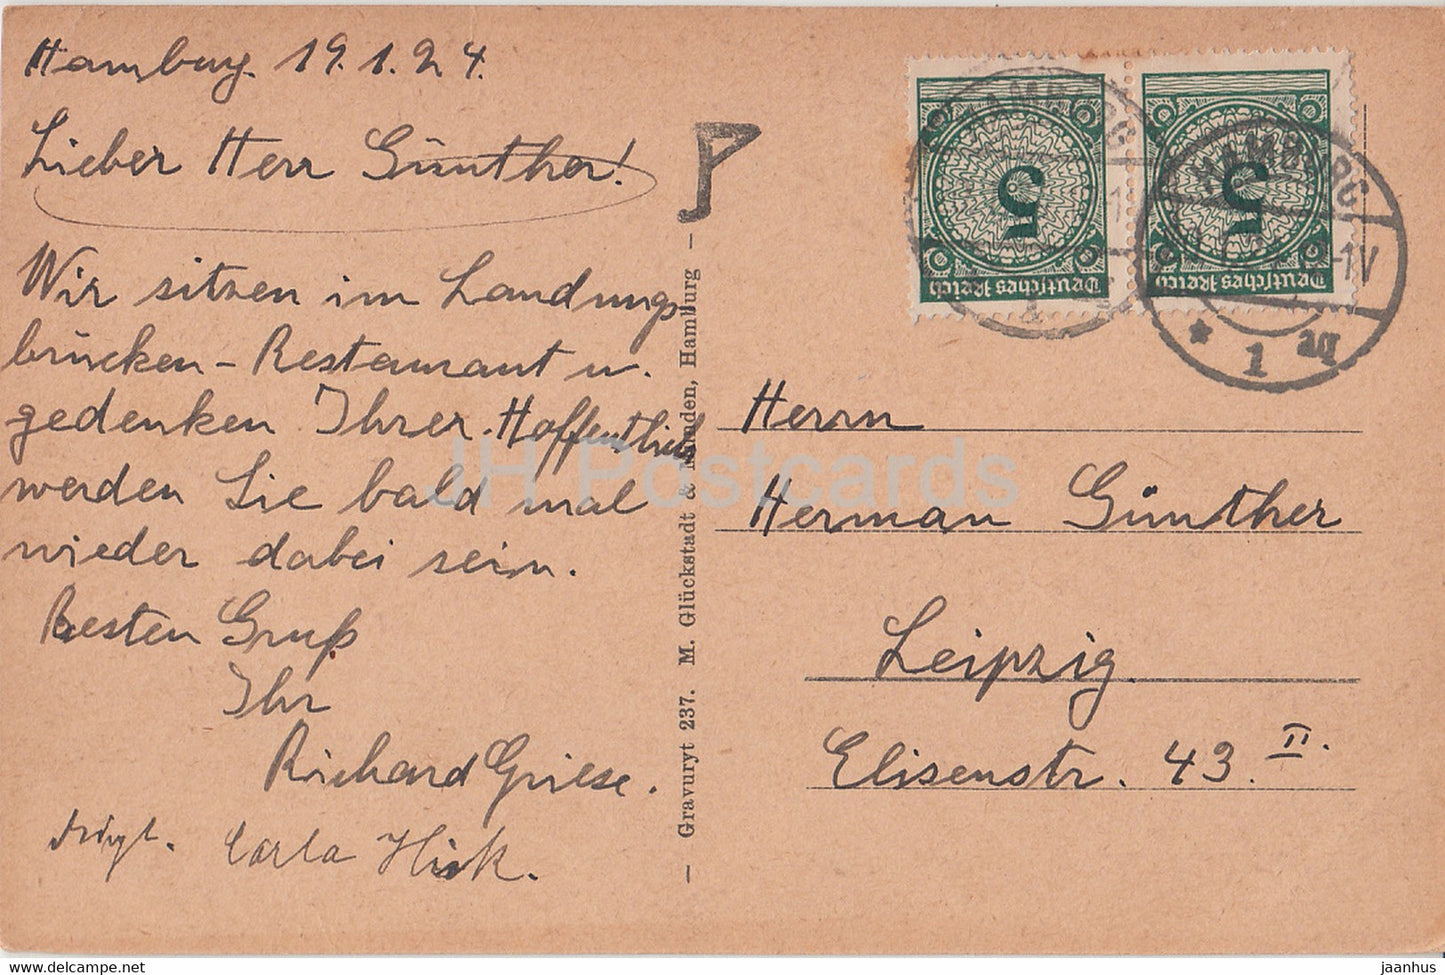 Hamburg. 19.1.24.
Lieber Herr Günther!
Wir sitzen im Landungs
brücken - Restaurant u.
gedenken Ihrer. Hoffentlich
werden Sie bald mal
wieder dabei sein.
Besten Gruß
Ihr
Richard Griese.
Carla
- Gravuryt 237. M. Glückstadt & Münden, Hamburg -
5
Deutsches Reich
5
Deutsches Reich
HAMBURG
* 1
Herrn
Herman Günther
Leipzig.
Elisenstr. 43. II.
JH Postcards
https://www.delcampe.net
jaanhus